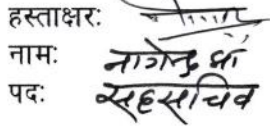 हस्ताक्षरः
नामः नागेन्द्र झा
पदः सहसचिव